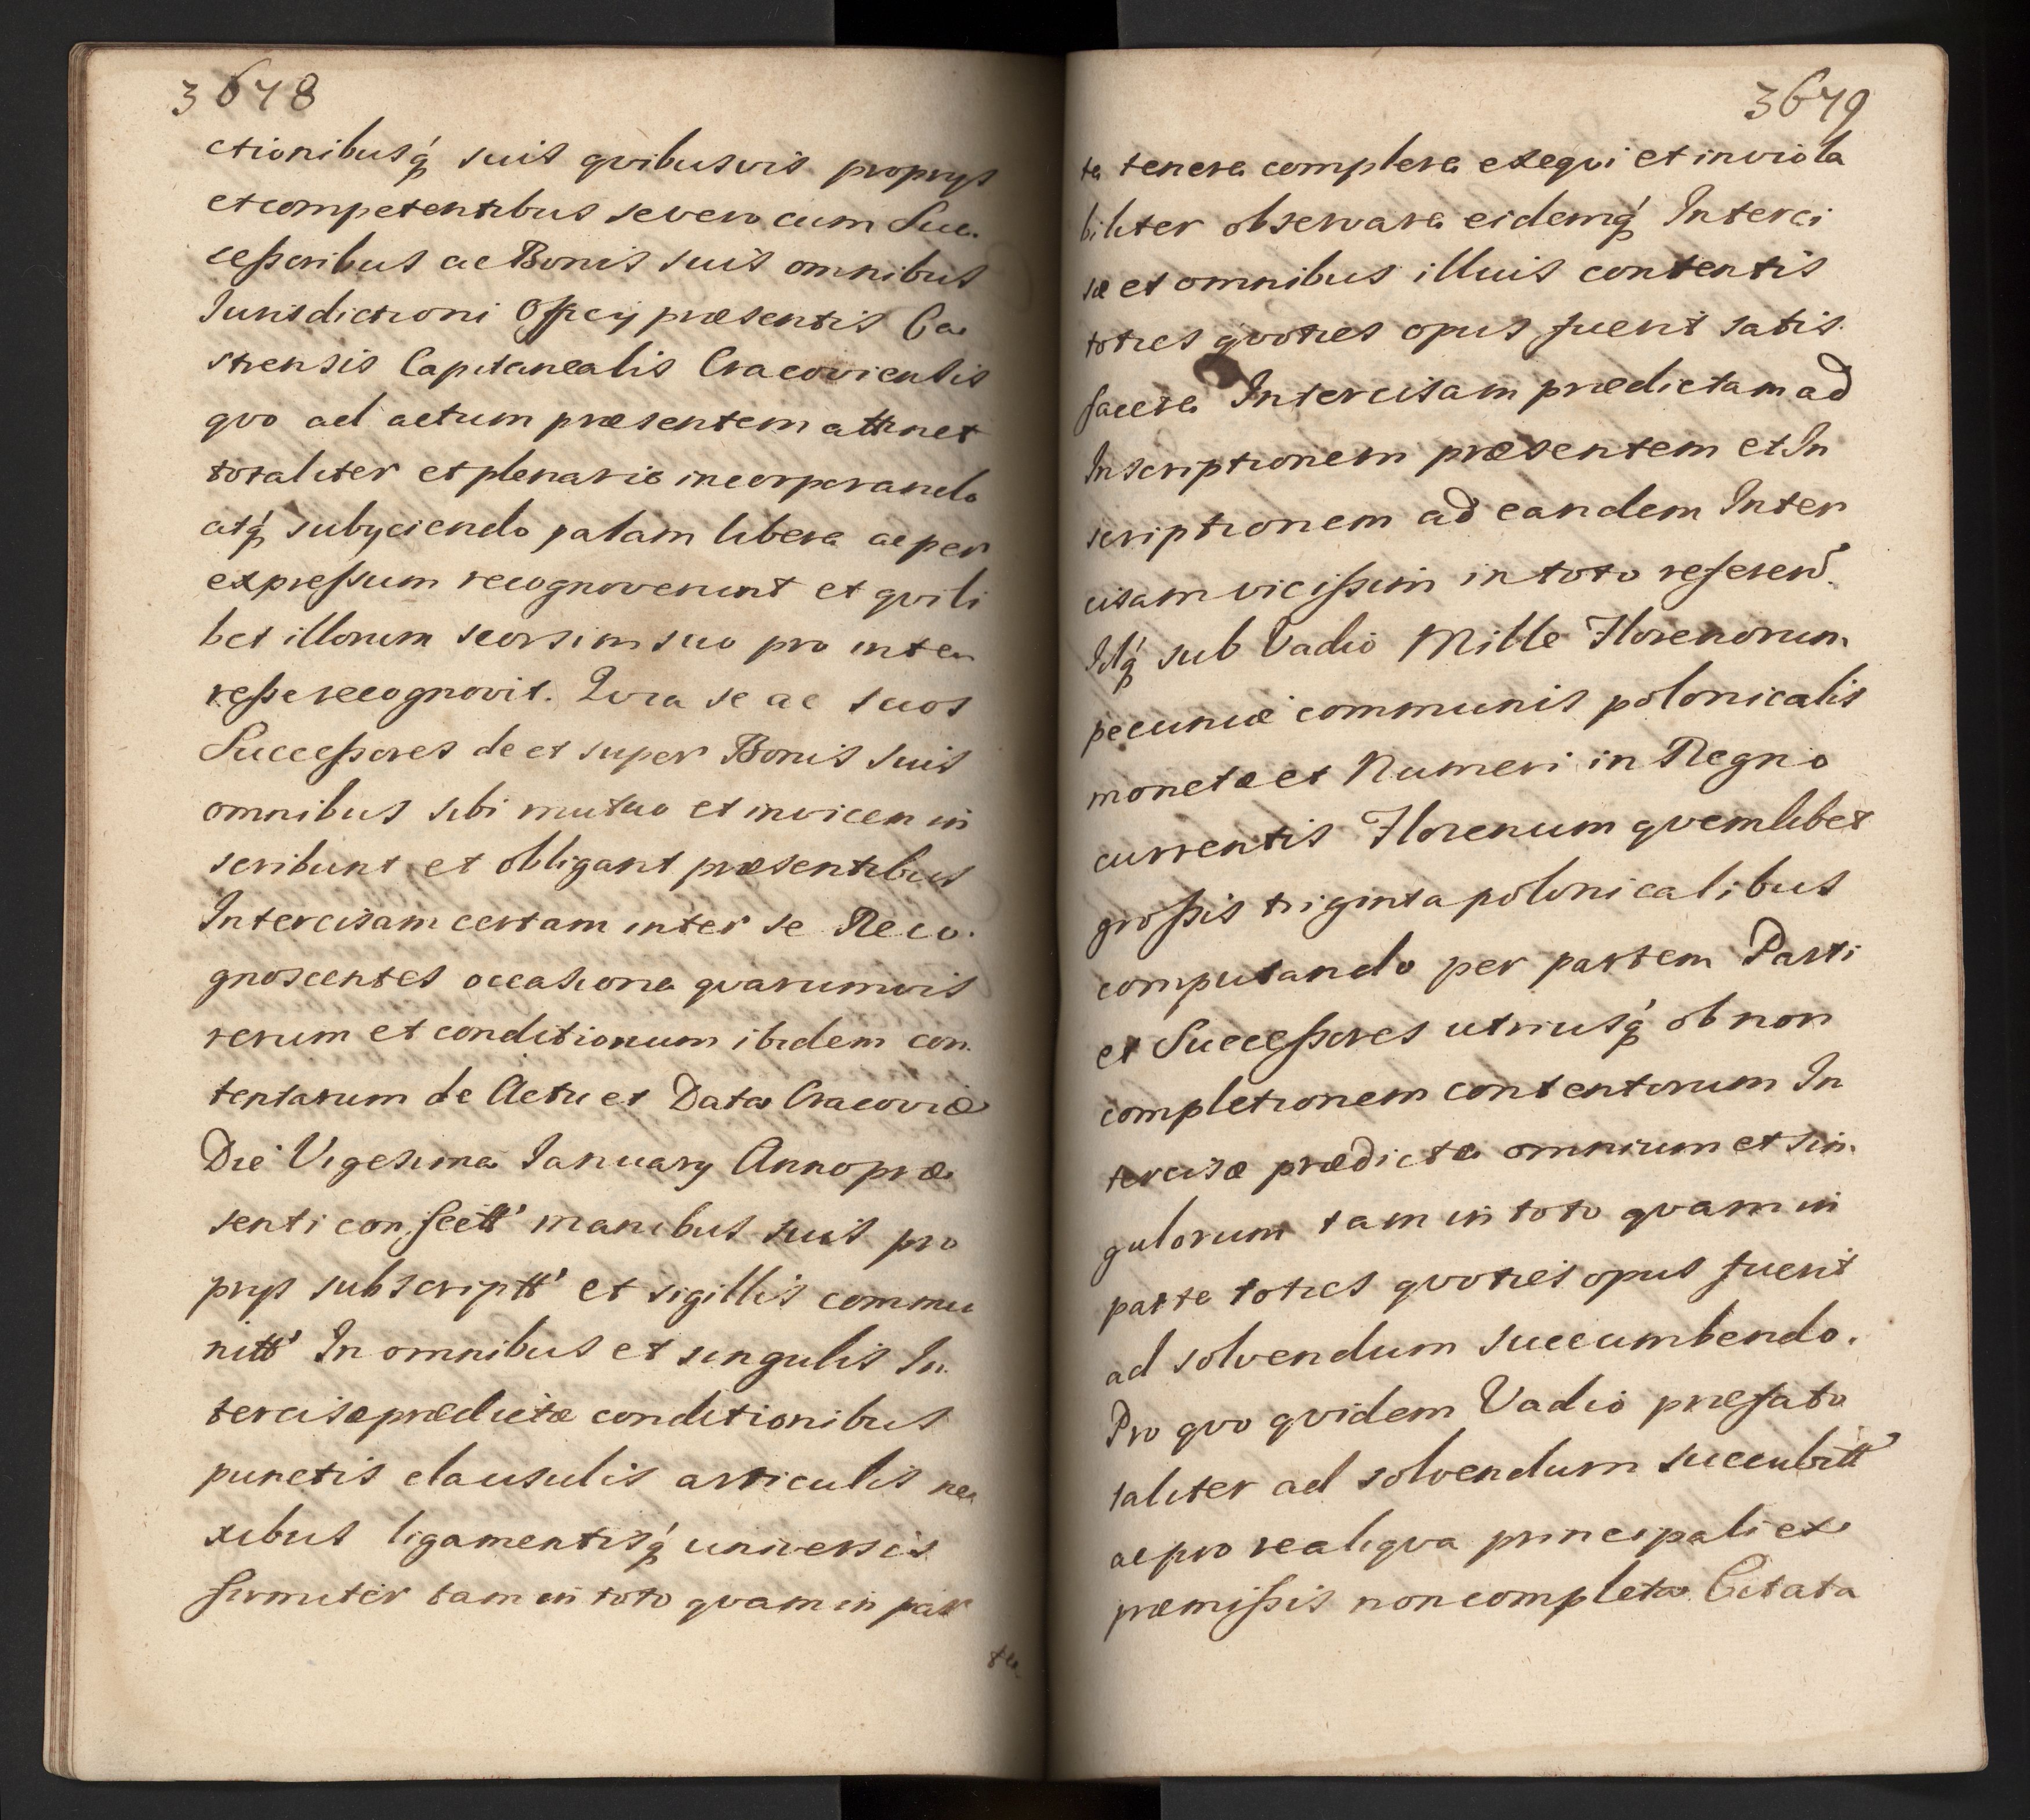 3678
ctionibusq́ suis qvibusvis proprys
et competentibus se vero cum Suc
cessoribus ac Bonis suis omnibus
Iurisdictioni Officy præsentis Ca
strensis Capitanealis Cracoviensis
qvo ad actum præsentem attinet
totaliter et plenarie incorporando
atq́ subyciendo palam libere ac per
expressum recognoverunt et qvili
bet illorum seorsim suo pro inte
resse recognovit. Qvia se ac suos
Successores de et super Bonis suis
omnibus sibi mutuo et invicem in
scribunt et obligant præsentibus
Intercisam certam inter se Reco.
gnoscentes occasione qvarumvis
rerum et conditionum ibidem con
tentarum de Actu et Data Cracoviæ
Die Vigesima January Anno præ
senti confectt' manibus suis pro
prys subscriptt' et sigillis commu
nitt' In omnibus et singulis In
tercisæ prædictæ conditionibus
punctis clausulis articulis ne
xibus ligamentisq́ universis
firmiter tam in toto qvam in par
te
3679
te tenere complere exeqvi et inviola
biliter observare eidemq́ Interci
sæ et omnibus illius contentis
toties qvoties opus fuerit satis
facere Intercisam prædictam ad
Inscriptionem præsentem et In
scriptionem ad eandem Inter
cisam vicissim in toto referend.
Idq́ sub Vadio Mille Florenorum
pecuniæ communis polonicalis
monetæ et Numeri in Regno
currentis Florenum qvemlibet
grossis triginta polonicalibus
computando per partem Parti
et Successores utriusq́ ob non
completionem contentorum In
tercisæ prædictæ omnium et sin
gulorum tam in toto qvam in
parte toties qvoties opus fuerit
ad solvendum succumbendo.
Pro qvo qvidem Vadio præfato
taliter ad solvendum succubitt'
ac pro re aliqva principali ex
præmissis non completa Citata